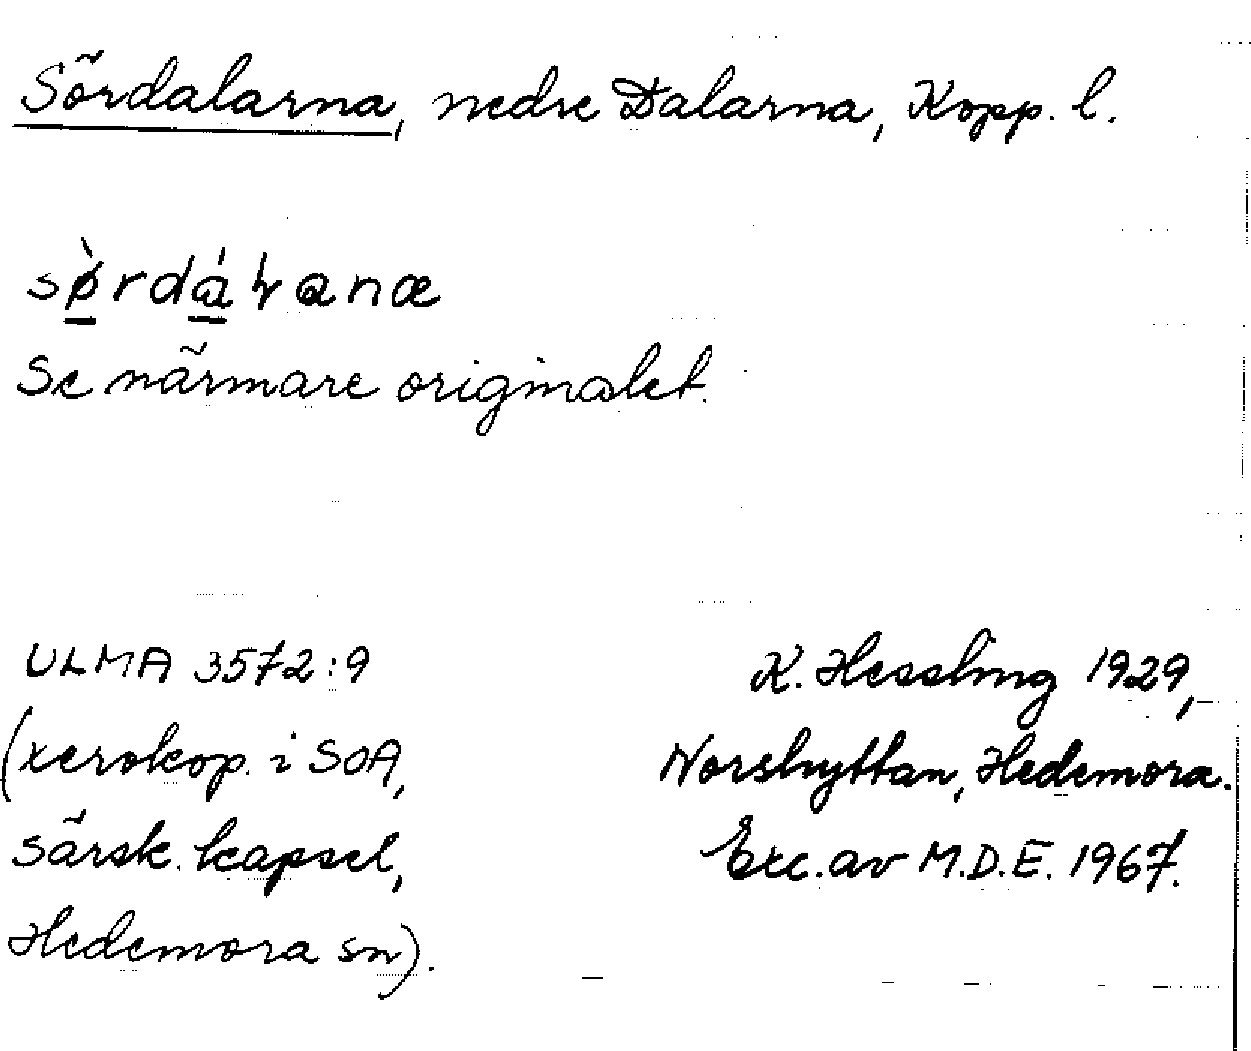 Sördalarna, nedre Dalarna, Kopp. l.
sø̀rdáɽanæ
Se närmare originalet.
ULMA 3572:9
(xerokop. i SOA,
särsk. kapsel,
Hedemora sn).
K. Hessling 1929,
Norshyttan, Hedemora.
Exc. av M.D.E. 1967.